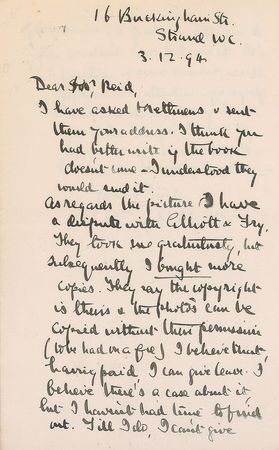 16 Buckingham St.
Strand W.C.
3.12.94.
Dear Mr. Reid,
I have asked Brethmens & sent
them your address. I think you
had better write if the book
doesn't come – I understood they
would send it.
As regards the picture I have
a dispute with Elliott & Fry.
They took me gratuitously, but
subsequently I bought more
copies. They say the copyright
is theirs & the photos can be
copied without their permission
(to be had on a fee) I believe that,
having paid, I can give leave. I
believe there's a case about it,
but I haven't had time to find
out. Till I do, I can't give